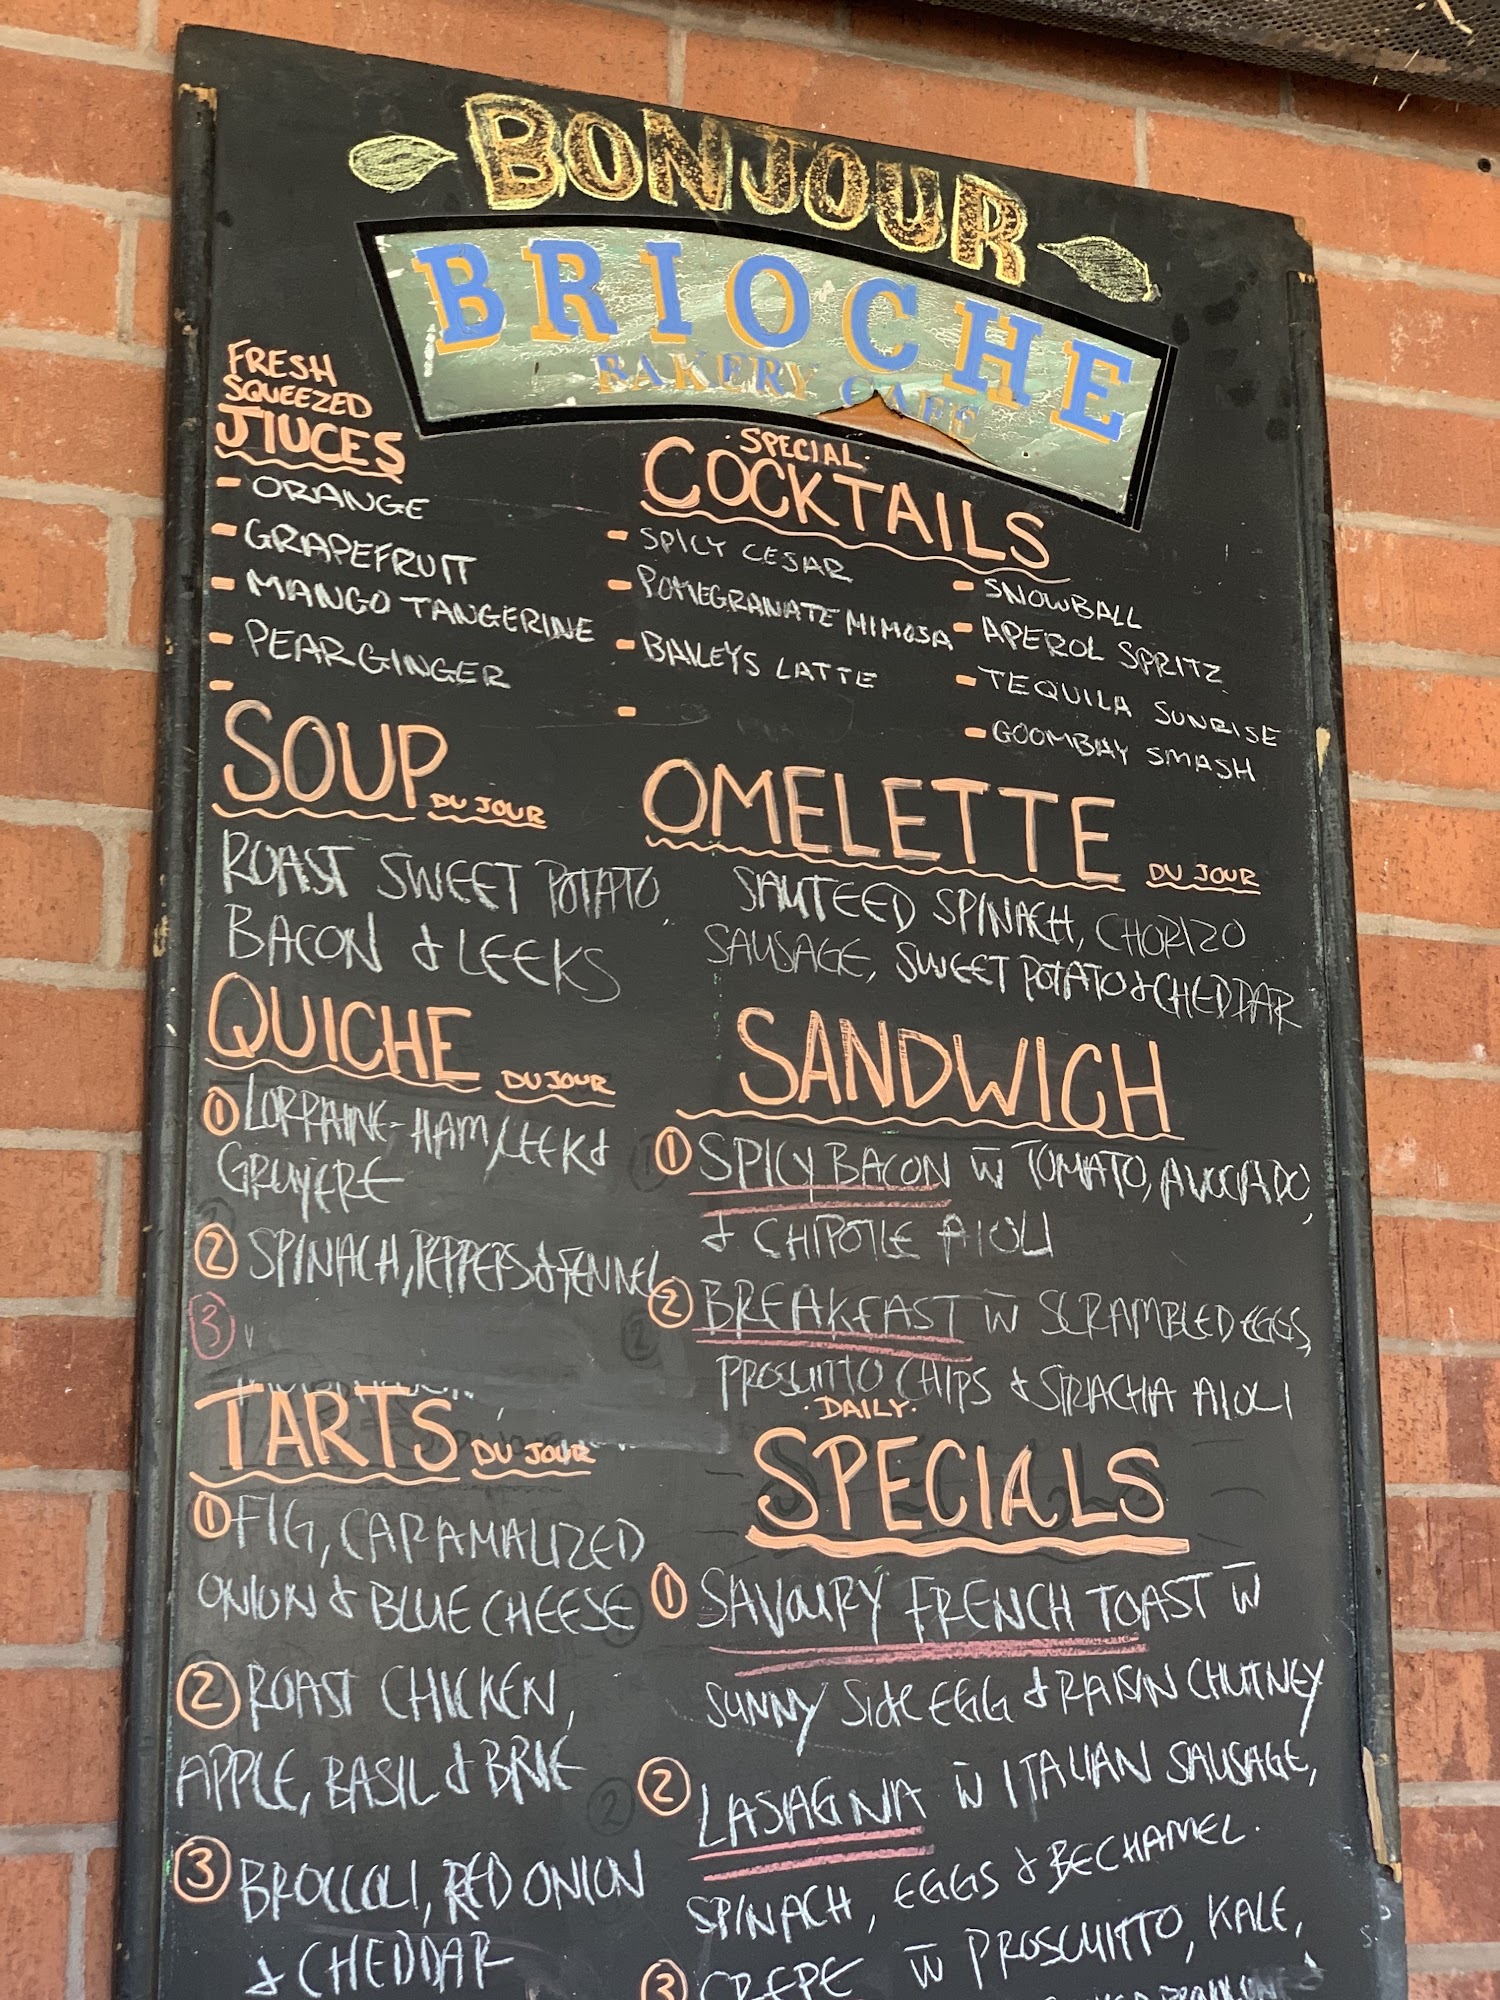 BONJOUR
BRIOCHE
BAKERY CAFE
FRESH
SQUEEZED
JIUCES
- ORANGE
- GRAPEFRUIT
- MANGO TANGERINE
- PEAR GINGER
-
SPECIAL
COCKTAILS
- SPICY CESAR
- POMEGRANATE MIMOSA
- BAILEYS LATTE
-
- SNOWBALL
- APEROL SPRITZ
- TEQUILA SUNRISE
- GOOMBAY SMASH
SOUP DU JOUR
ROAST SWEET POTATO
BACON & LEEKS
OMELETTE DU JOUR
SAUTEED SPINACH, CHORIZO
SAUSAGE, SWEET POTATO & CHEDDAR
QUICHE DU JOUR
① LORRAINE - HAM, LEEK &
GRUYERE
② SPINACH, PEPPERS & FENNEL
③
SANDWICH
① SPICY BACON W TOMATO, AVOCADO,
& CHIPOTLE AIOLI
② BREAKFAST W SCRAMBLED EGGS,
PROSCUITTO CHIPS & SIRACHA AIOLI
TARTS DU JOUR
① FIG, CARAMALIZED
ONION & BLUE CHEESE
② ROAST CHICKEN,
APPLE, BASIL & BRIE
③ BROCCOLI, RED ONION
& CHEDDAR
·DAILY·
SPECIALS
① SAVOURY FRENCH TOAST W
SUNNY SIDE EGG & RAISIN CHUTNEY
② LASAGNA W ITALIAN SAUSAGE,
SPINACH, EGGS & BECHAMEL.
③ CREPE W PROSCUITTO, KALE,